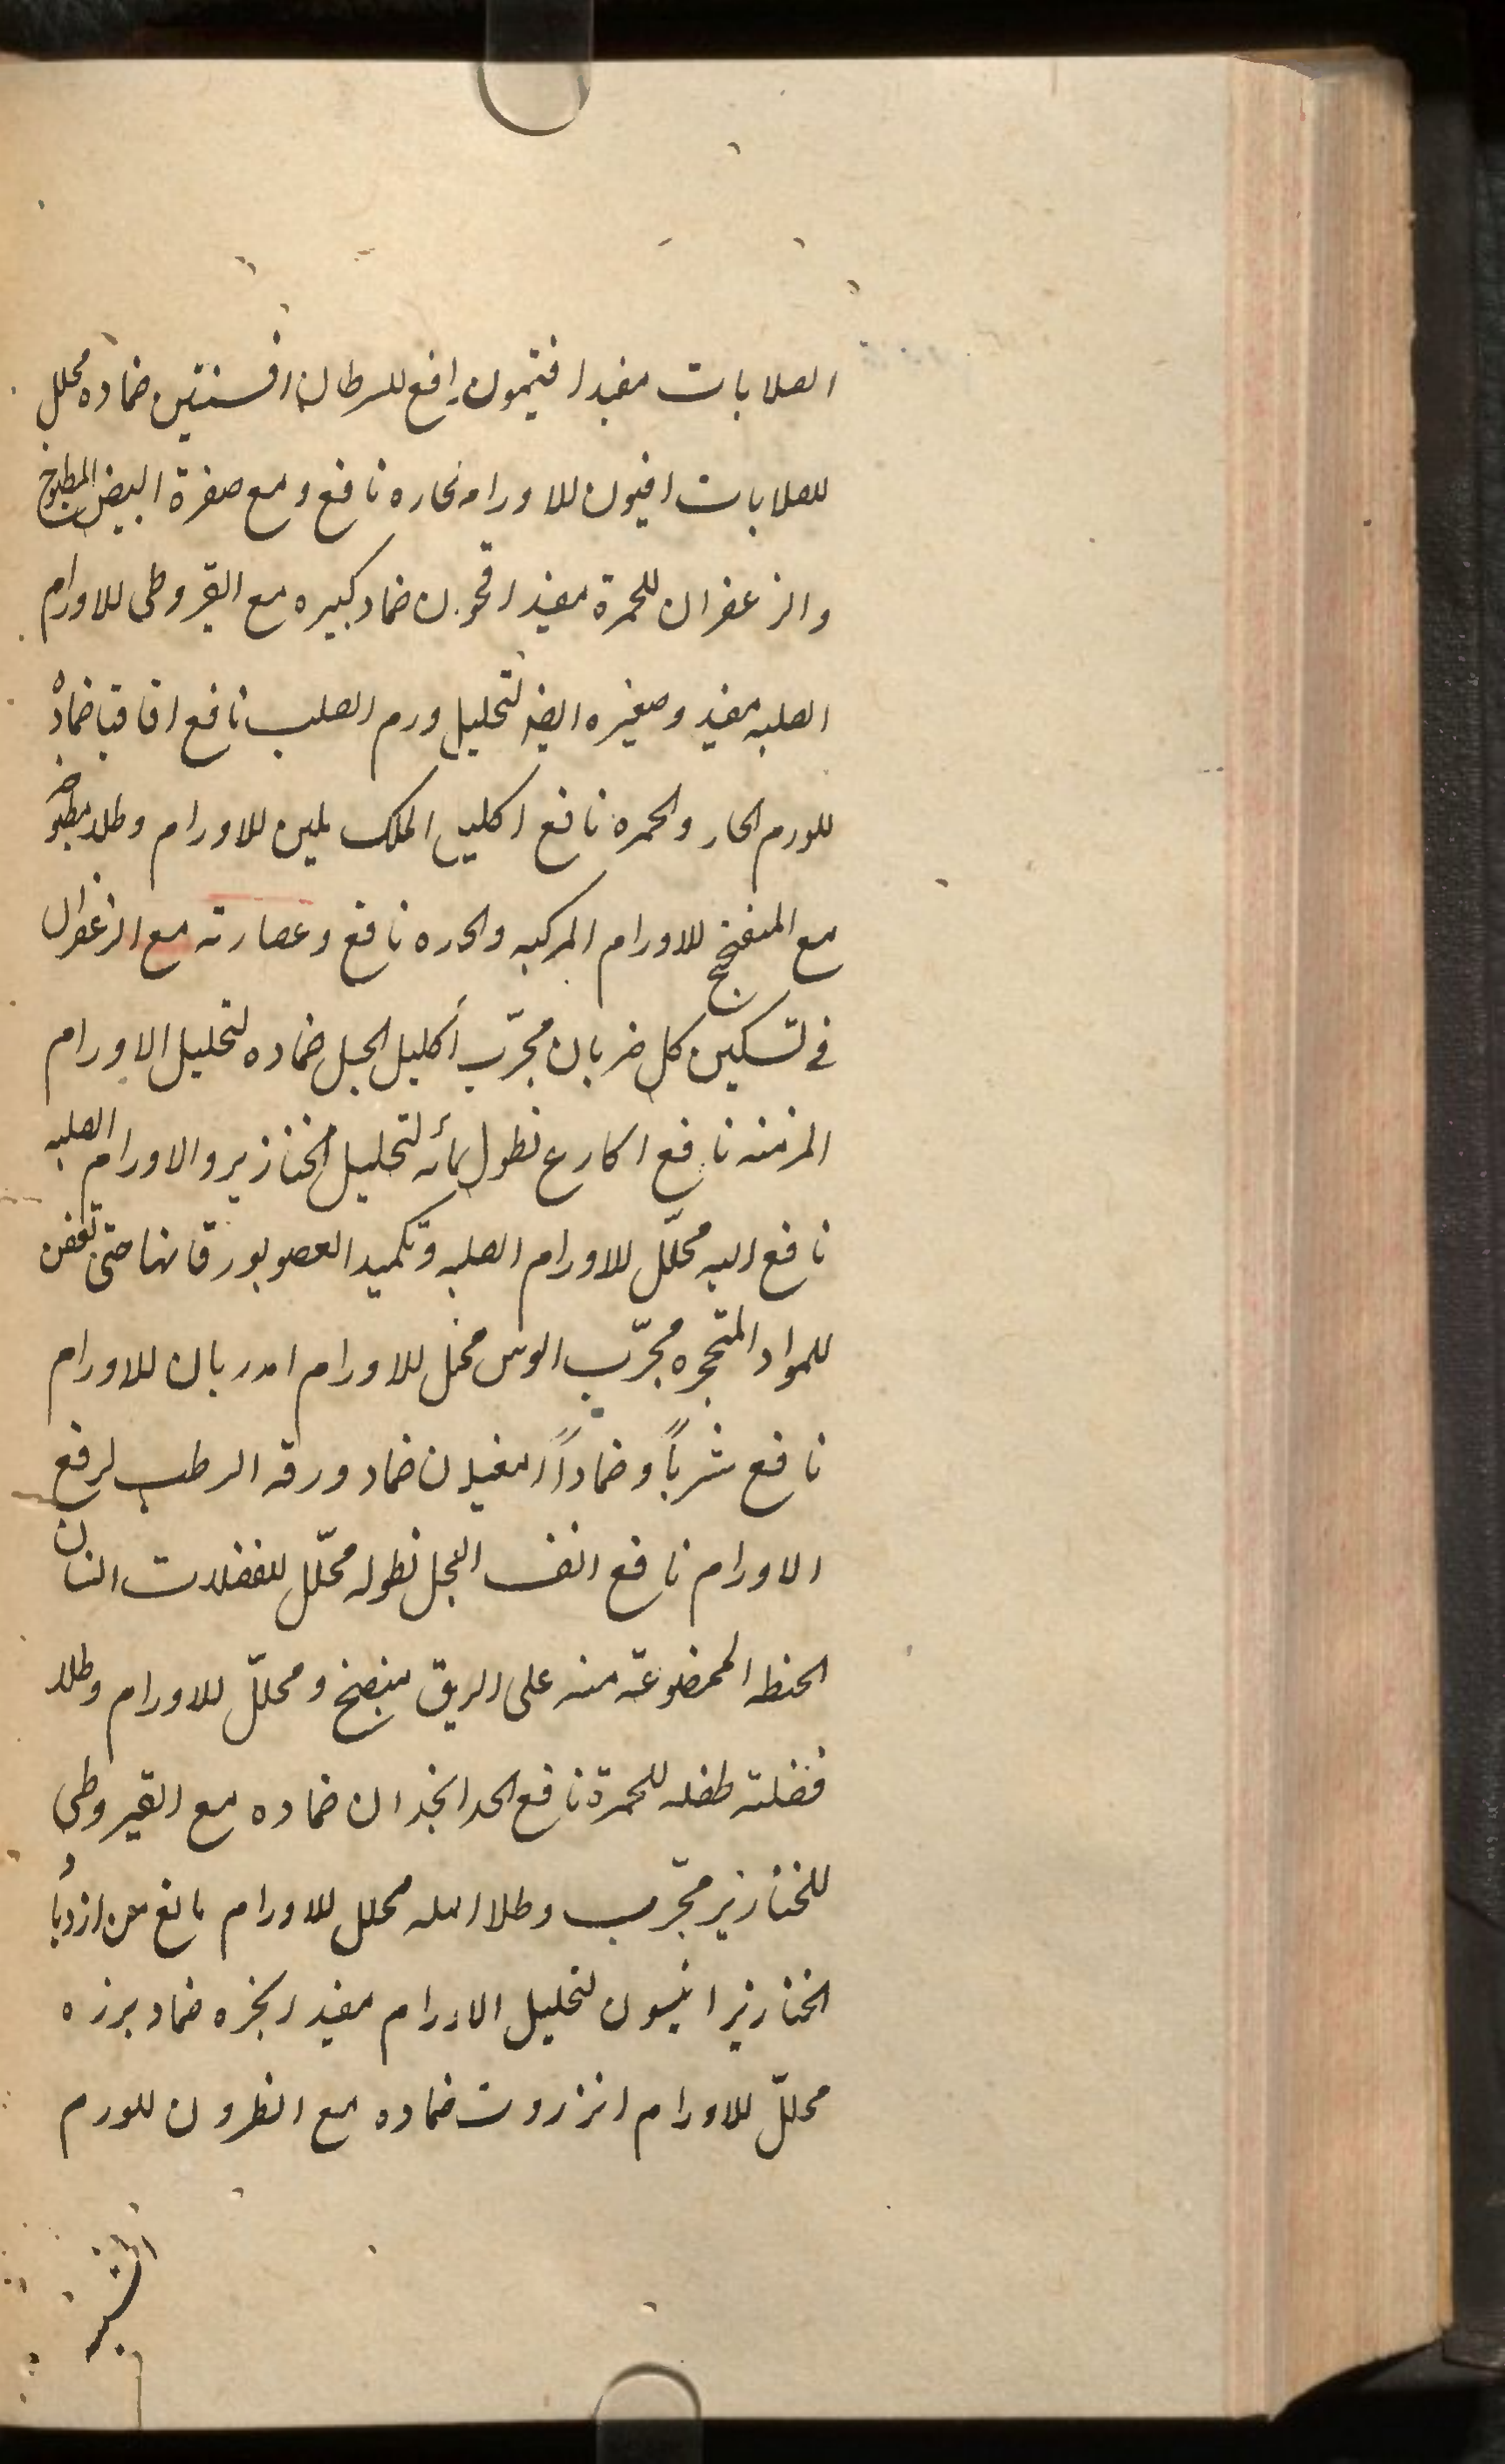 الصلابات مفید افتیمون رافع للسرطان افسنتین ضماده محلل
للصلابات افیون للاورام الحاره نافع و مع صفرة البیض المطبوخ
والزعفران للحمرة مفید اقحوان ضماد کبیره مع القیروطی للاورام
الصلبه مفید و صغیره ایضا لتحلیل ورم الصلب نافع اقاقیا ضماده
للورم الحار والحمره نافع اکلیل الملک ملین للاورام و طلاء مطبوخه
مع المیفختج للاورام المرکبه والحاره نافع و عصارته مع الزعفران
فی تسکین کل ضربان مجرّب اکلیل الجبل ضماده لتحلیل الاورام
المزمنه نافع اکارع نطول بمائه لتحلیل الخنازیر والاورام الصلبه
نافع الیه محلّل للاورام الصلبه و تکمید العضو بورقانها حتی تعفن
للمواد المتحجره مجرّب الوس محلل للاورام امدریان للاورام
نافع شرباً و ضماداً امغیلان ضماد ورقه الرطب لرفع
الاورام نافع انف العجل نطوله محلّل للفضلات انسان
الحنطه الممضوغة منه علی الریق منضج و محللّ للاورام و طلاء
فضلته طفله للحمرة نافع الحد انجدان ضماده مع القیروطی
للخنازیر مجرّب و طلا اصله محلل للاورام مانع من ازدیاد
الخنازیر انیسون لتحلیل الاورام مفید انجره ضماد بزره
محللّ للاورام انزروت ضماده مع النطرون للورم